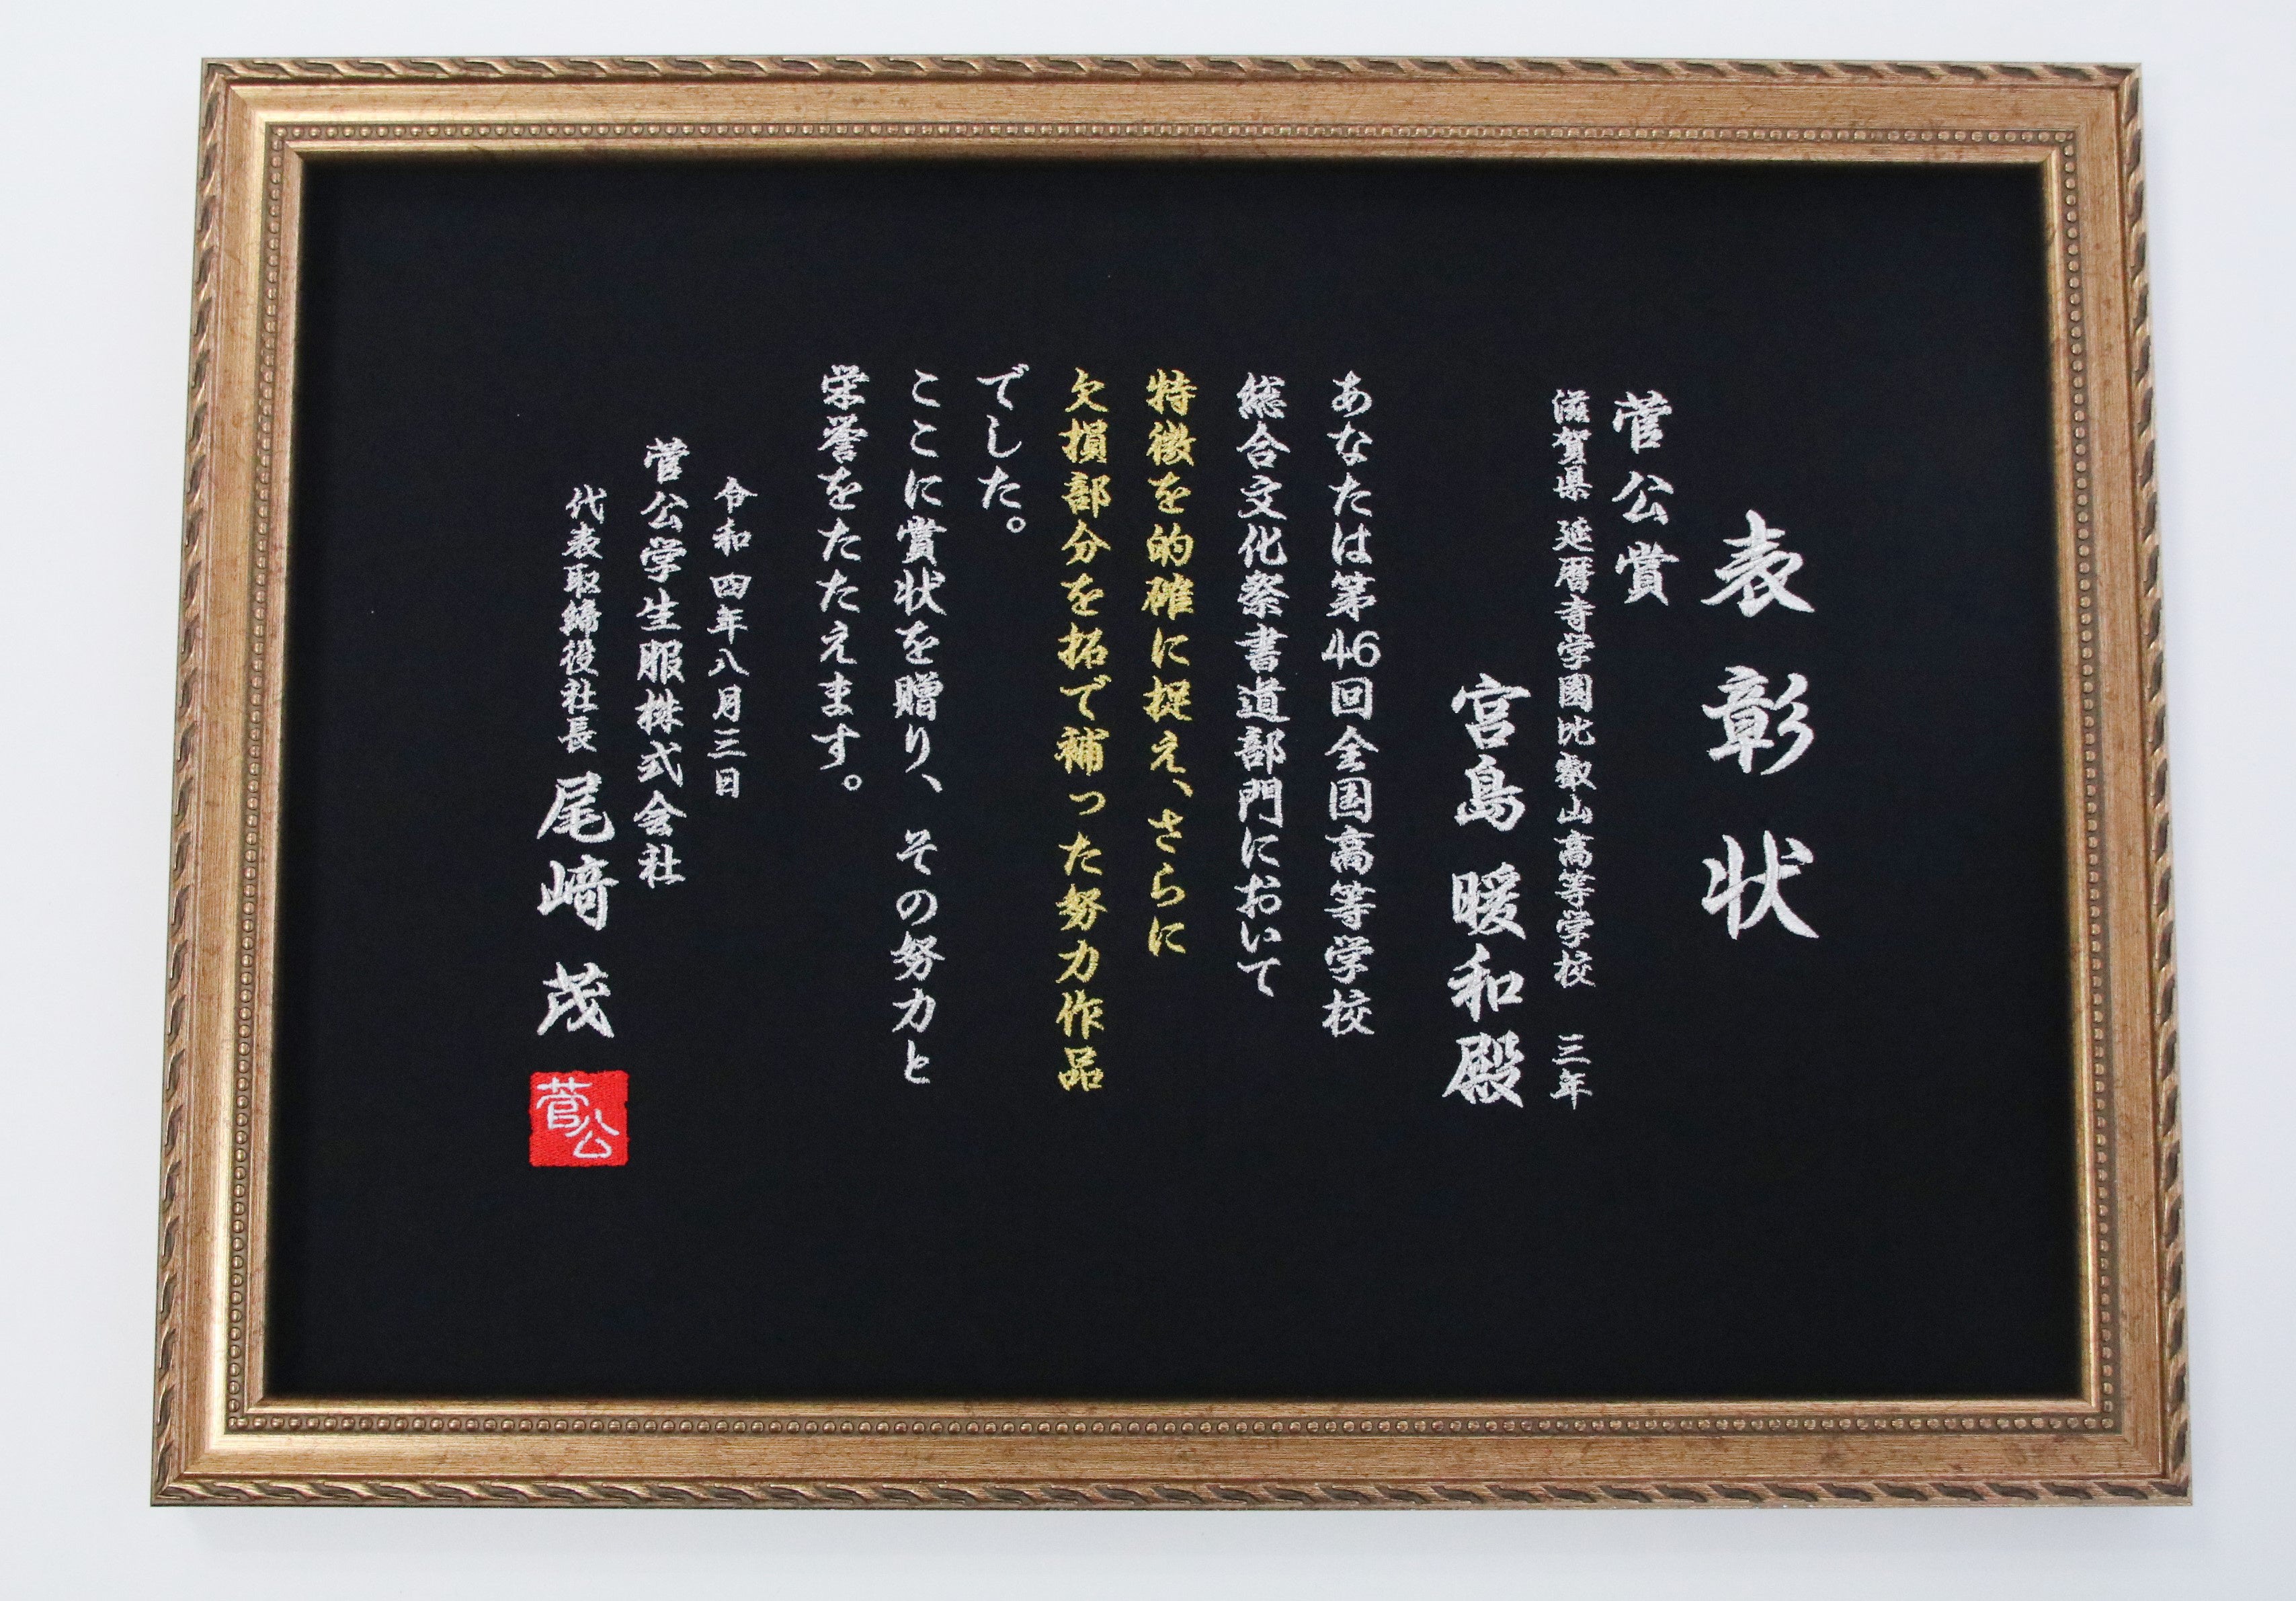 表彰状
菅公賞
滋賀県 延暦寺学園比叡山高等学校 三年
宮島 暖和殿
あなたは第46回全国高等学校
総合文化祭書道部門において
特徴を的確に捉え、さらに
欠損部分を拓で補った努力作品
でした。
ここに賞状を贈り、その努力と
栄誉をたたえます。
令和四年八月三日
菅公学生服株式会社
代表取締役社長 尾﨑 茂
菅公